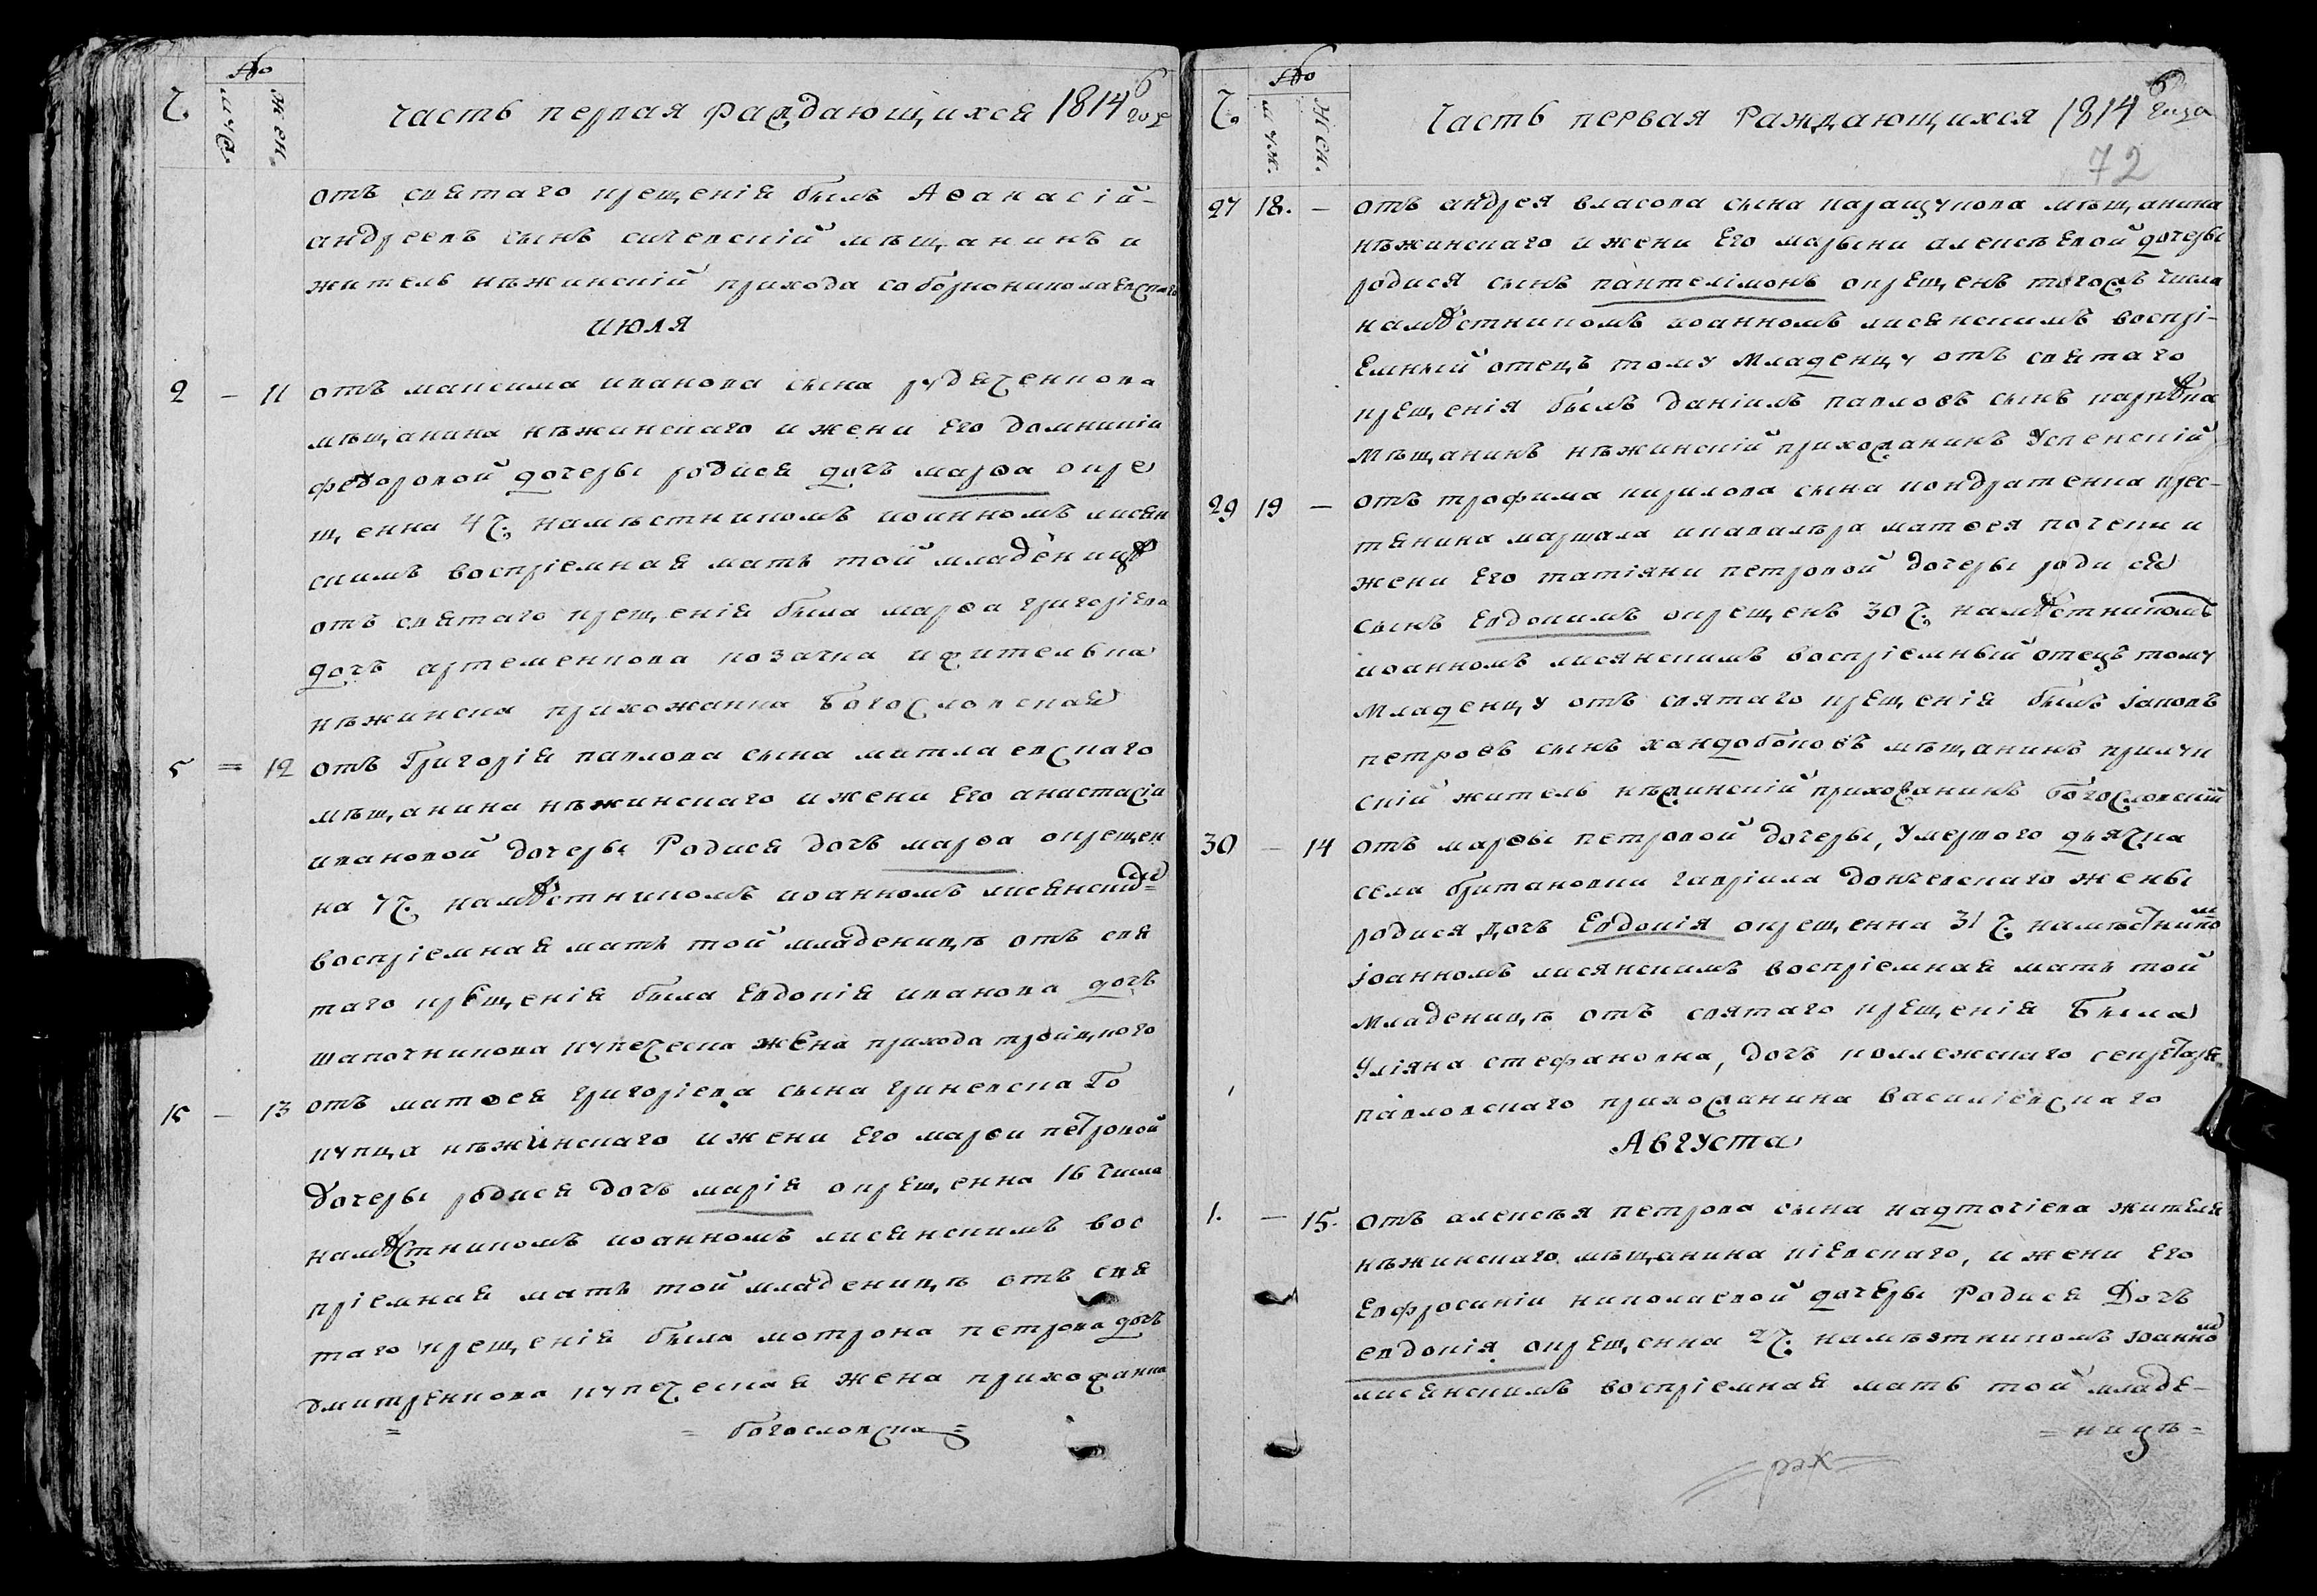 Ч.
№
муж.
жен.
часть первая раждающихся 1814 года
отъ святаго крещенія былъ Аѳанасій
андреевъ сынъ сичевскій мѣщанинъ и
житель нѣжинскій прихода соборнониколаевскаго
июля
2 – 11 отъ максима иванова сына рудаченкова
мѣщанина нѣжинскаго и жени Его домникіи
федоровой дочеры родися дочь марѳа окре
щенна 4 ч. намѣстникомъ иоанномъ лисян
скимъ воспріемная мать той младеницѣ
отъ святаго крещенія была марѳа григоріева
дочь артеменкова козачка и жителька
нѣжинска прихожанка Богословская
5 = 12 отъ Григорія павлова сына магилаевскаго
мѣщанина нѣжинскаго и жени Его анастасіи
ивановой дочеры Родися дочь марѳа окрещен
на 7 ч. намѣстникомъ иоанномъ лисянским=
воспріемная мать той младеницѣ отъ свя
таго крещенія была Евдокія иванова дочь
шапочникова купеческа жена прихода тройцкого
15 – 13 отъ матѳея григоріева сына гриневскаго
купца нѣжинскаго и жени Его марѳи петровой
дочеры родися дочь марія окрещенна 16 числа
намѣстникомъ иоанномъ лисянскимъ вос
пріемная мать той младеницѣ отъ свя
таго крещенія была мотрона петрова дочь
дмитренкова купеческая жена прихожанка
= = богословска =
Ч.
№
муж.
жен.
Часть первая Раждающихся 1814 года
72
27 18. – отъ андрея власова сына паращукова мѣщанина
нѣжинскаго и жени Его марыни алексѣевой дочеры
родися сынъ пантелімонъ окрещенъ тогожъ числа
намѣстникомъ иоанномъ лисянскимъ воспрі-
емный отецъ тому Младенцу отъ святаго
крещенія былъ даніилъ павловъ сынъ
мѣщанинъ нѣжинскій прихожанинъ Успенскій
29 19 – отъ трофима кирилова сына кондратенка крес-
тянина маршала и кавалѣра матѳея почеки и
жени Его татіяни петровой дочеры родися
сынъ Евдокимъ окрещенъ 30 ч. намѣстникомъ
иоанномъ лисянскимъ воспріемный отецъ тому
младенцу отъ святаго крещенія былъ іаковъ
петровъ сынъ хандобоковъ мѣщанинъ прилуч
скій житель нѣжинскій прихожанинъ богословскій
30 – 14 отъ марѳы петровой дочеры, Умершого дьячка
села британовки гавріила дончевскаго жены
родися дочь Евдокія окрещенна 31 ч. намѣстником
іоанномъ лисянскимъ воспріемная мать той
младеницѣ отъ святаго крещенія Была
Уліяна стефановна, дочь коллежскаго секретаря
павловскаго прихожанина василіевскаго
Августа
1. – 15. отъ алексѣя петрова сына надточіева жителя
нѣжинскаго мѣщанина кіевскаго, и жени Его
Евфросиніи николаевой дочеры Родися Дочь
евдокія окрещенна 2 ч. намѣстникомъ иоанном
лисянскимъ воспріемная мать той младе-
= ницѣ =